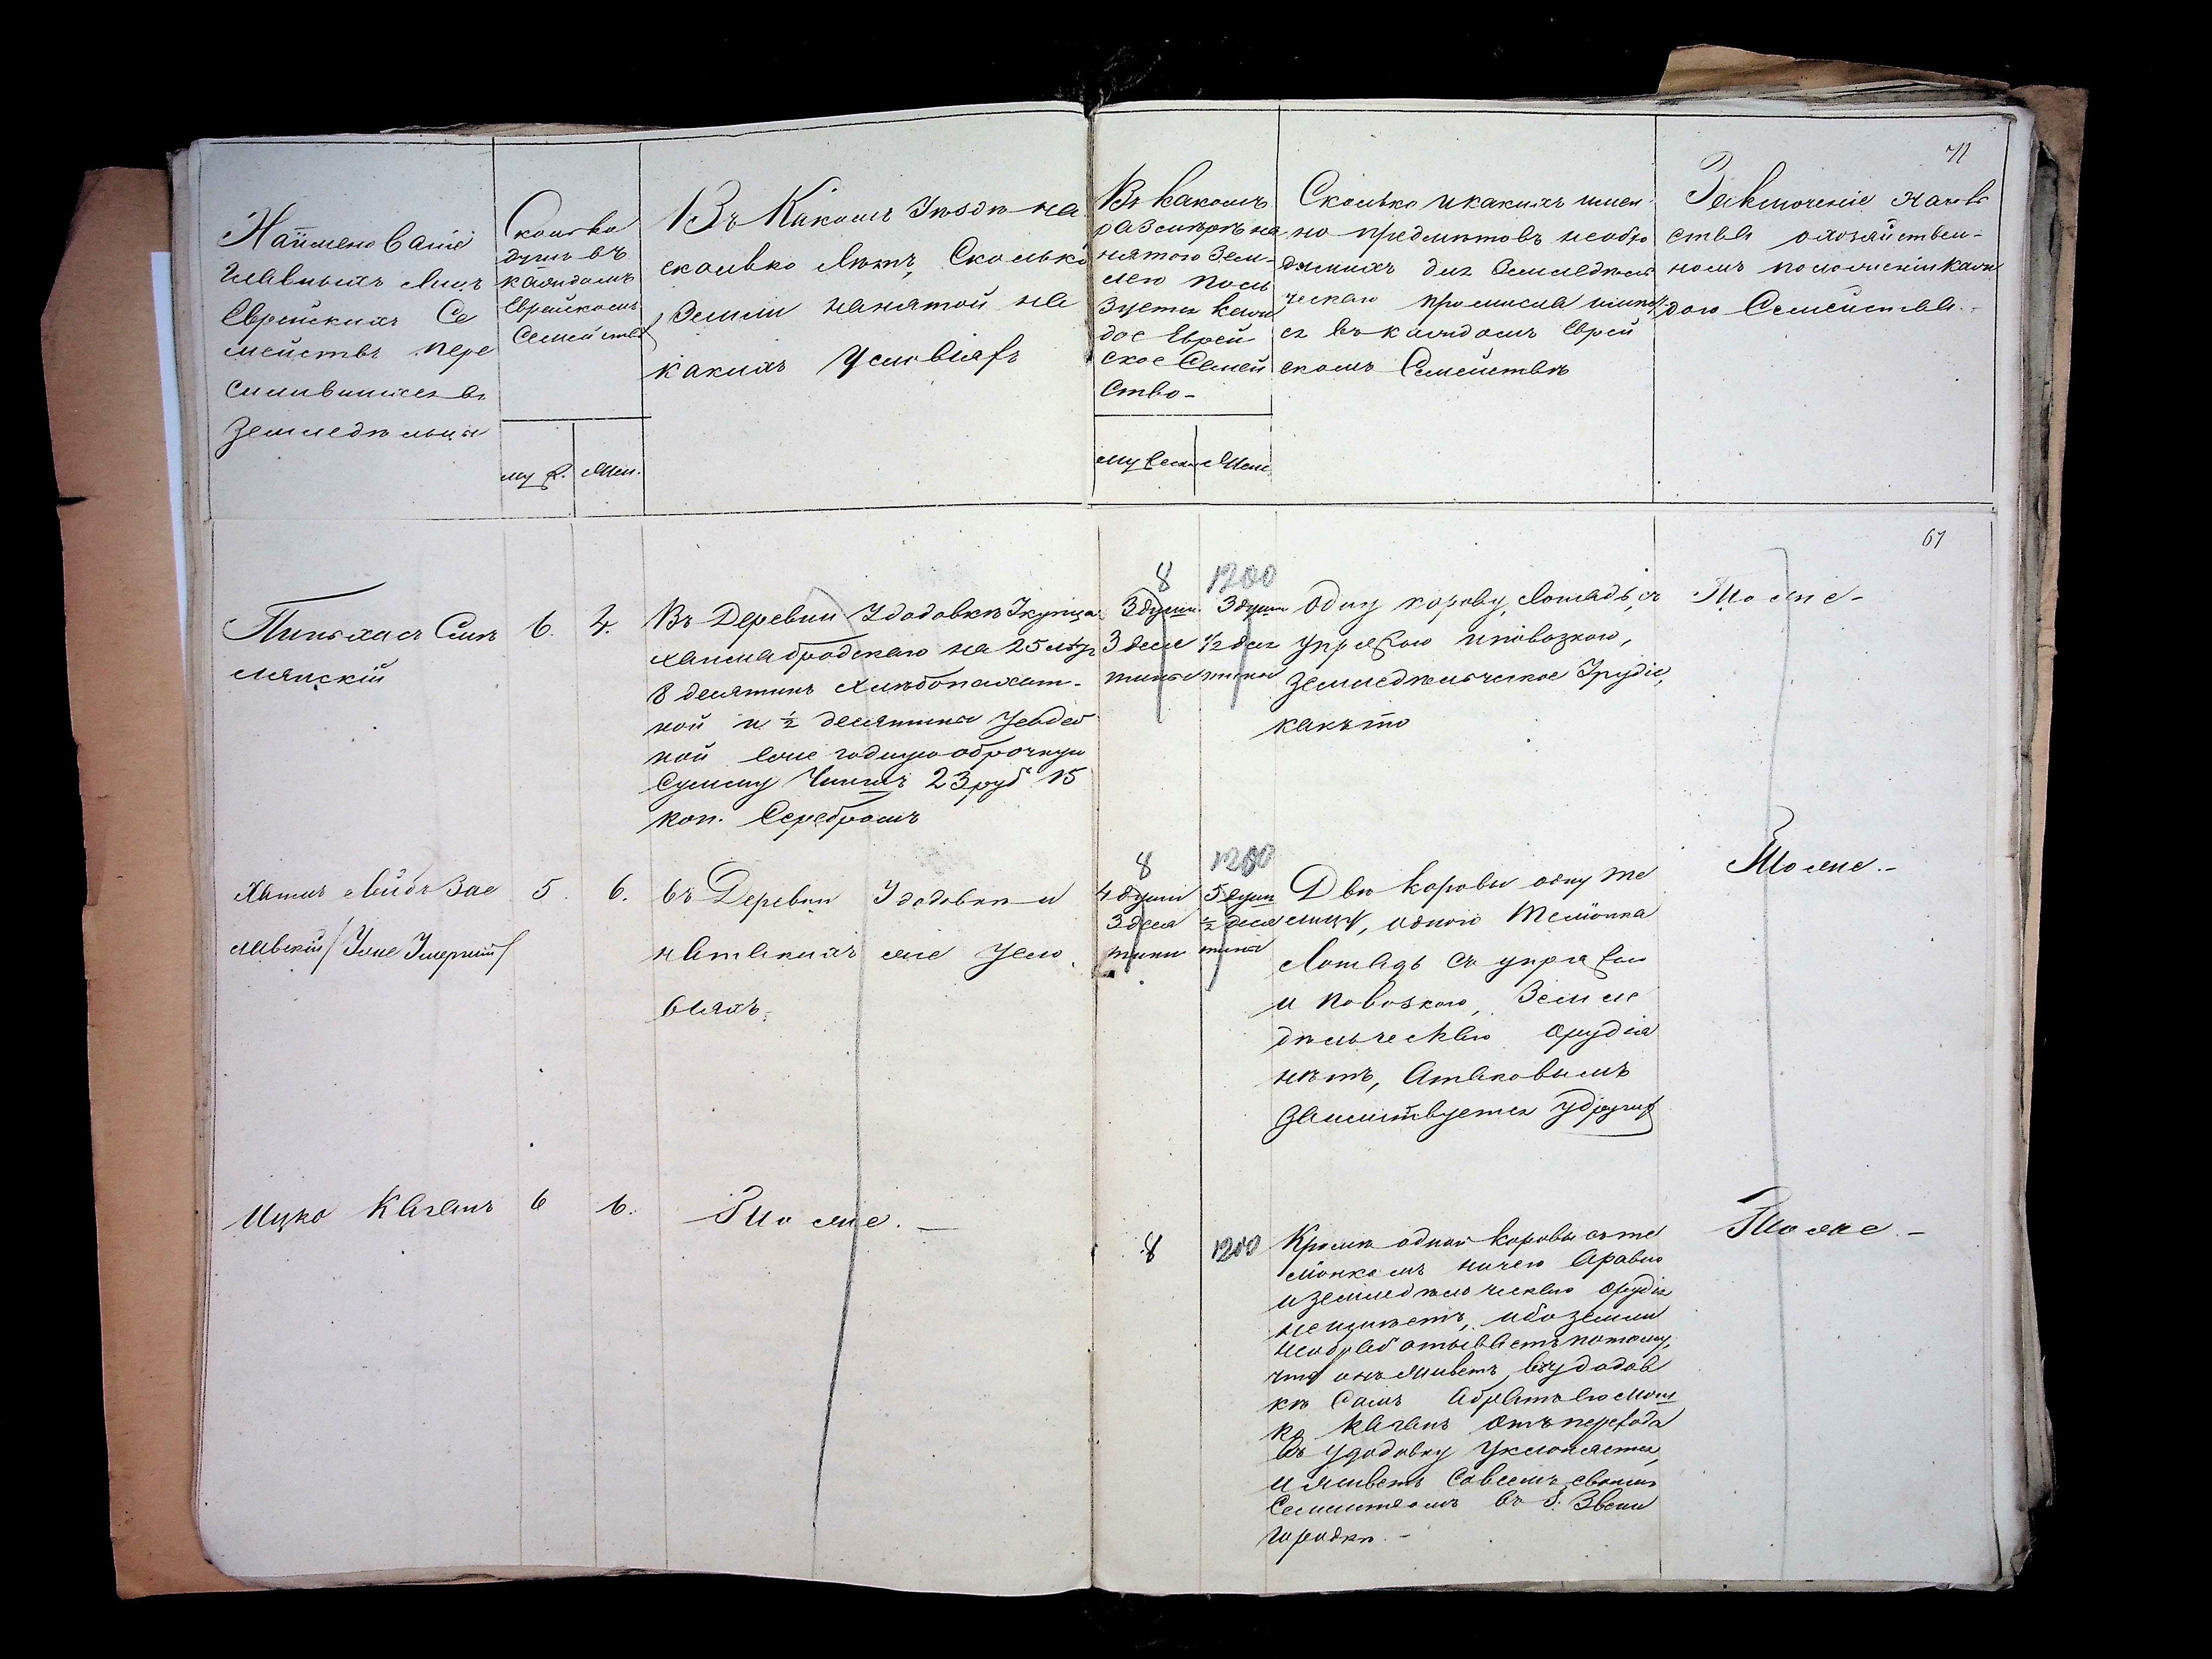 71
Наименованіе
главныхъ лицъ
Еврейскихъ Се
мействъ пере
численныхъ въ
земледѣльцы
Сколько
душъ въ
каждомъ
Еврейскомъ
Семействѣ
муж. Жен.
Въ Какомъ Уѣздѣ на
сколько лѣтъ, Сколько
земли нанятой на
какихъ Условіяхъ
Въ какомъ
размѣрѣ на
нятою Зем-
лею поль
зуется каж
дое Еврей
ское Семей
ство-
мужеск Жен
Сколько и какихъ имен
но предметовъ необхо
димыхъ для Земледѣль
ческаго промысла имѣет
ся въ каждомъ Еврей
скомъ Семействѣ
Заключеніе началь
ства о хозяйствен-
номъ положеніи каж
даго Семейства.-
67
Пиньхасъ Смѣ
лянскій
6. 4.
Въ Деревни Удодовкѣ Укупца
на 25 лѣтъ
8 десятинъ хлѣбопахат-
ной и ½ десятины усадеб
ной годичную оброчную
Сумму Чиншъ 23 руб 15
коп. Серебромъ
8 1200
3 души 3 души
3 деся ½ дес
тины тины
Одну корову, лошадь съ
упряжью и повозкою,
земледѣльческое Орудіе,
какъ то
Тоже-
Хаимъ Лейбъ Зас
лавскій /Уже Умершій/
5. 6.
въ Деревни Удодовки и
на такихъ же усло
віяхъ.
8 1200
4 души 5 душ
3 деся ½ деся
тины тины
Двѣ коровы одну те
лицу, одного телёнка
Лошадь съ упряжью
и повозкою, Земле
дѣльческаго орудія
нѣтъ, а таковымъ
заимствуется у другихъ
Тоже.-
Ицко Каганъ 6 6. Тоже.-
8 1200
Кромѣ одной коровы съ те
лёнкомъ ничего а равно
и земледѣльческаго орудія
не имѣетъ, ибо земли
необрабатываетъ потому,
что онъ живетъ въ Удодов
кѣ Самъ а братъ его Мош
ко Каганъ отъ перехода
въ Удодовку уклоняется,
и живетъ со всемъ своимъ
Семействомъ въ г. Звени
городкѣ.-
Тоже.-